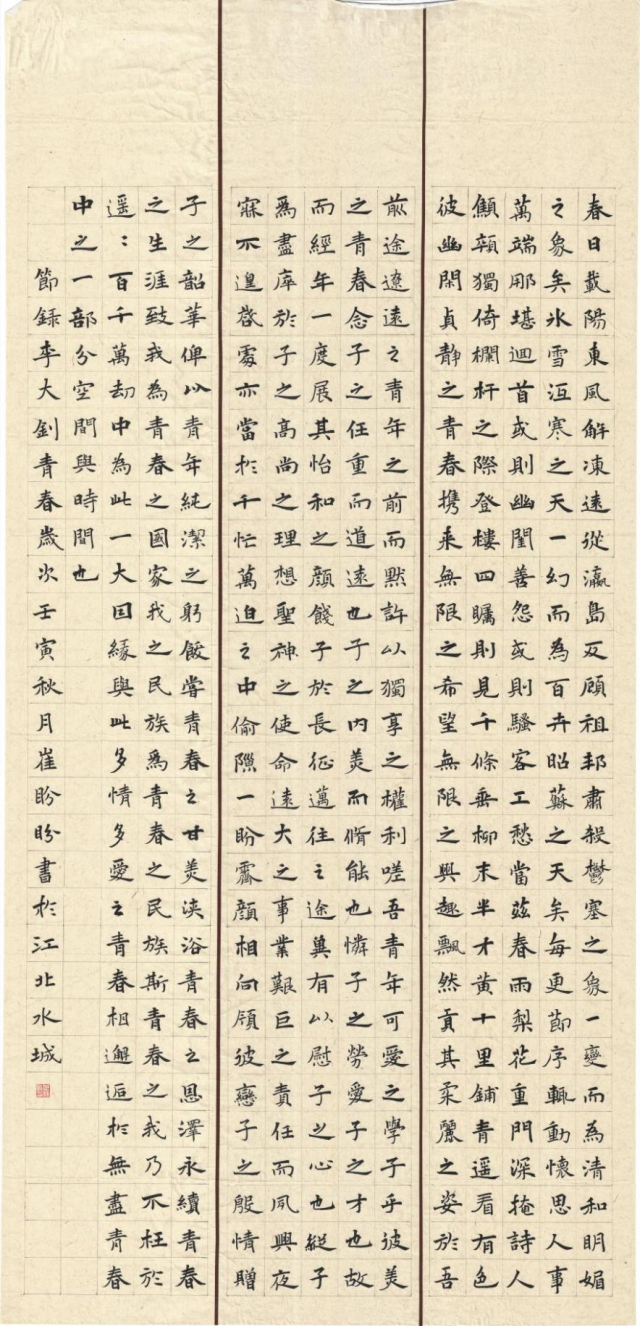 春日載陽東風解凍遠從瀛島反顧祖邦肅殺鬱塞之象一變而為清和明媚
之象矣冰雪沍寒之天一幻而為百卉昭蘇之天矣每更節序輒動懷思人事
萬端那堪迴首或則幽閨善怨或則騷客工愁當茲春雨梨花重門深掩詩人
顦顇獨倚欄杆之際登樓四矚則見千條垂柳未半才黃十里鋪青遥看有色
彼幽閑貞靜之青春携来無限之希望無限之興趣飄然貢其柔麗之姿於吾
前途遼遠之青年之前而默許以獨享之權利嗟吾青年可愛之學子乎彼美
之青春念子之任重而道遠也子之内美而脩能也憐子之勞愛子之才也故
而經年一度展其怡和之顔餞子於長征邁往之途冀有以慰子之心也縱子
為盡瘁於子之高尚之理想聖神之使命遠大之事業艱巨之責任而夙興夜
寐不遑啓處亦當於千忙萬迫之中偷隙一盼霽顔相向領彼戀子之殷情贈
子之韶華俾以青年純潔之躬飫嘗青春之甘美浹浴青春之恩澤永續青春
之生涯致我為青春之國家我之民族為青春之民族斯青春之我乃不枉於
遥：百千萬劫中為此一大因緣與此多情多愛之青春相邂逅於無盡青春
中之一部分空間與時間也
節録李大釗青春歲次壬寅秋月崔盼盼書於江北水城